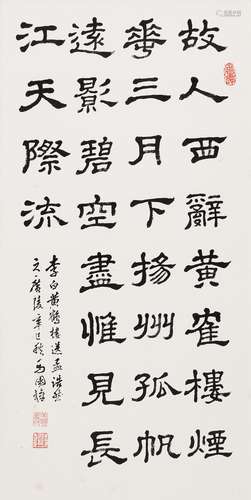 故人西辭黃隺樓煙
華三月下揚州孤帆
遠影碧空盡惟見長
江天際流
李白黃鶴樓送孟浩然
之廣陵辛巳秋馬國權